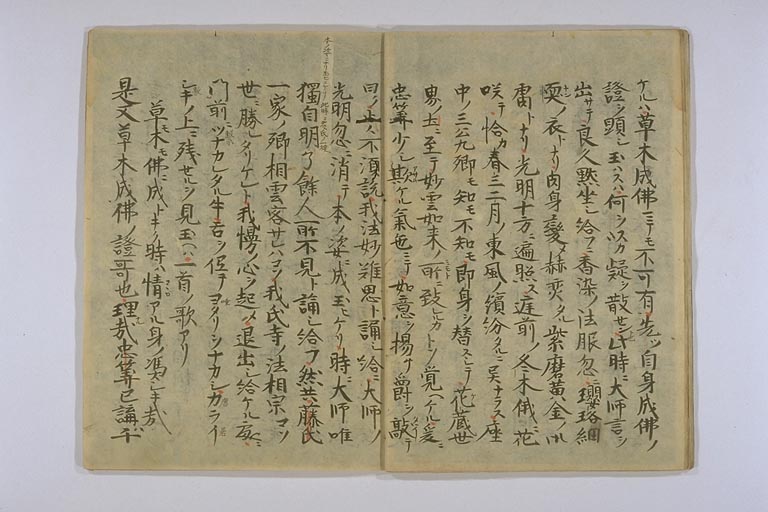 ケルハ草木成佛ニテモ不可有先ツ自身成佛ノ
證ヲ顕シ玉ハスハ何ヲ以カ疑ヲ散セン此時ニ大師言ヲ
出サテ良久黙坐シ給フニ香染ノ法服忽ニ瓔珞細
耎ノ衣トナリ肉身變メ赫奕タル紫磨黄金ノ
トナリ光明十方ニ遍照ス庭前ノ冬木俄ニ花
咲テ恰カ春三二月ノ東風ノ繽紛タルニ異ナラス座
中ノ三公九卿モ知モ不知モ即身ヲ替スシテ花蔵世
界土ニ至テ妙雲如来ノ所ニ致ルカトソ覚ヘケル爰ニ
忠筭少シ欺ケル氣色ニテ如意ヲ揚ケ爵ヲ敲テ
曰ク止々不須説我法妙難思ト誦シ給ヘハ大師ノ
光明忽ニ消テ本ノ姿ニ成玉ヒケリ時ニ大師唯
獨自明了餘人所不見ト誦シ給フ然共藤氏
一家ノ卿相雲客サレハヨノ我氏寺ノ法相宗コソ
世ニ勝レタリケレト我慢ノ心ヲ起メ退出シ給ケル處ニ
門前ニツナカレタル牛舌ヲ テヨタリヲナカシカライ
シキノ上ニ残セルヲ見玉ヘハ一首ノ歌アリ
草木モ佛ニ成トキク時ハ情アル身ノ馮シキ哉
是又草木成佛ノ證哥也理哉忠筭已講ハ千